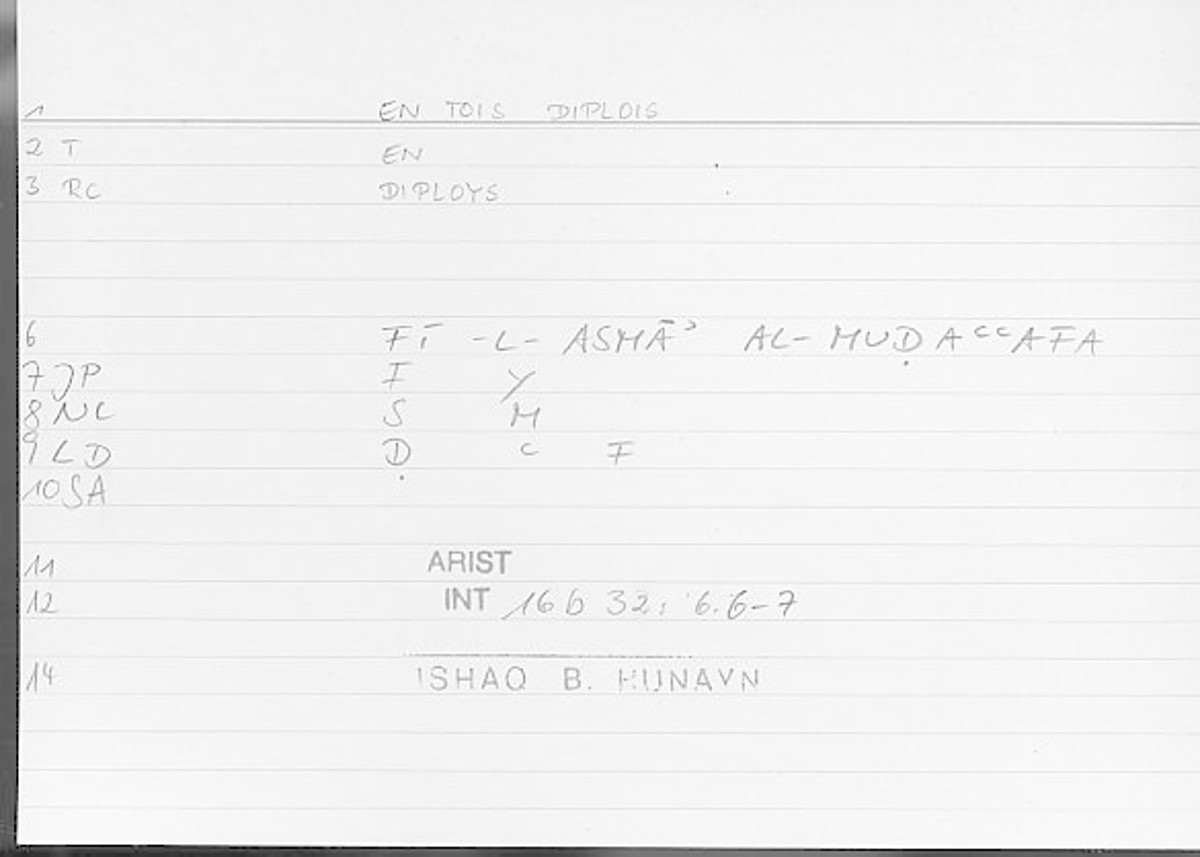 1 EN TOIS DIPLOIS
2 T EN
3 RC DIPLOYS
6 FĪ -L- ASMĀʾ AL- MUḌAʿʿAFA
7 JP I Y
8 NC S M
9 LD Ḍ ʿ F
10 SA
11 ARIST
12 INT 16 b 32; 6.6-7
14 ISHAQ B. HUNAYN